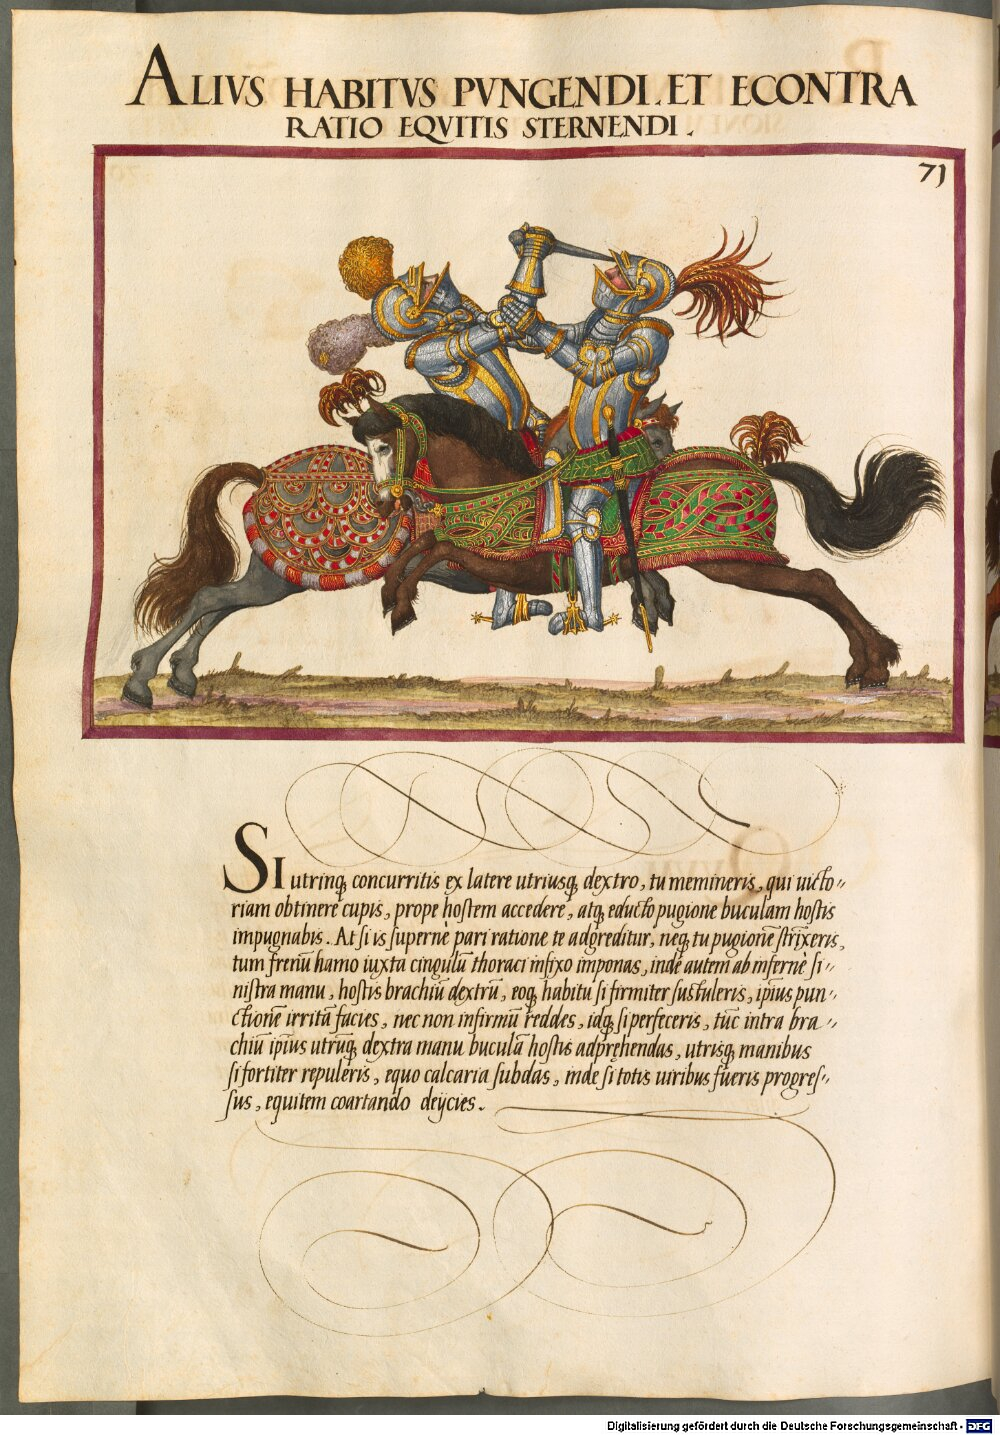 ALIVS HABITVS PVNGENDI. ET ECONTRA
RATIO EQVITIS STERNENDI.
71
SI utrinq; concurritis ex latere utriusq; dextro, tu memineris, qui uicto〃
riam obtinere cupis, prope hostem accedere, atq; educto pugione buculam hostis
impugnabis. At si is supernè pari ratione te adgreditur, neq; tu pugionē strixeris,
tum frenū hamo iuxta cingulū thoraci infixo imponas, inde autem ab infernè si〃
nistra manu, hostis brachiū dextrū, eoq; habitu si firmiter sustuleris, ipsius pun〃
ctionē irritā facies, nec non infirmū reddes, idq; si perfeceris, tūc intra bra〃
chiū ipsius utrūq; dextra manu buculā hostis adpręhendas, utrisq; manibus
si fortiter repuleris, equo calcaria subdas, inde si totis uiribus fueris progres〃
sus, equitem coartando deijcies.
Digitalisierung gefördert durch die Deutsche Forschungsgemeinschaft - DFG